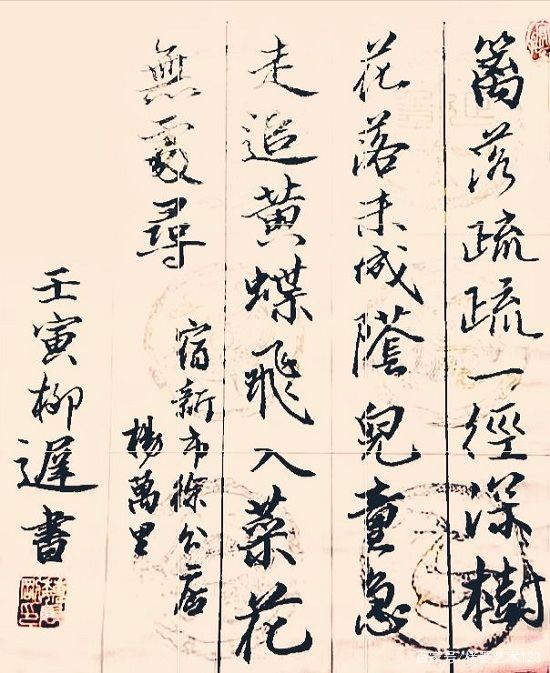 籬落疏疏一徑深樹
花落未成蔭兒童急
走追黃蝶飛入菜花
無處尋
宿新市徐公店
楊萬里
壬寅柳遲書
百家号/
艺术123